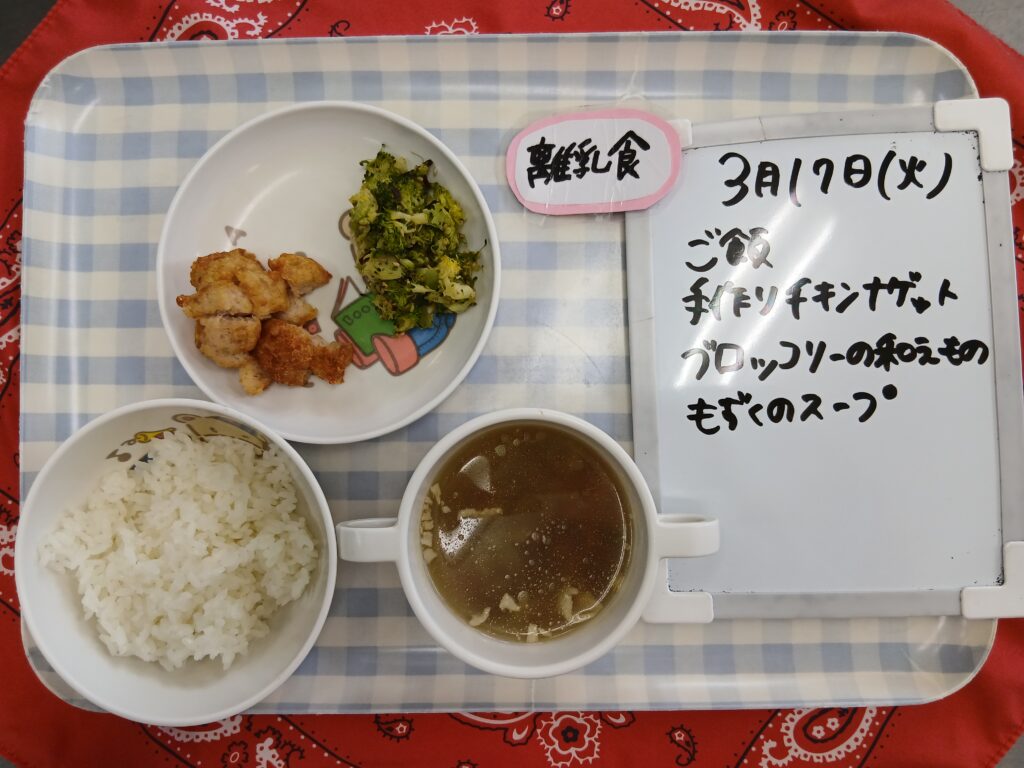 離乳食
3月17日(火)
ご飯
手作りチキンナゲット
ブロッコリーの和えもの
もずくのスープ
BOO